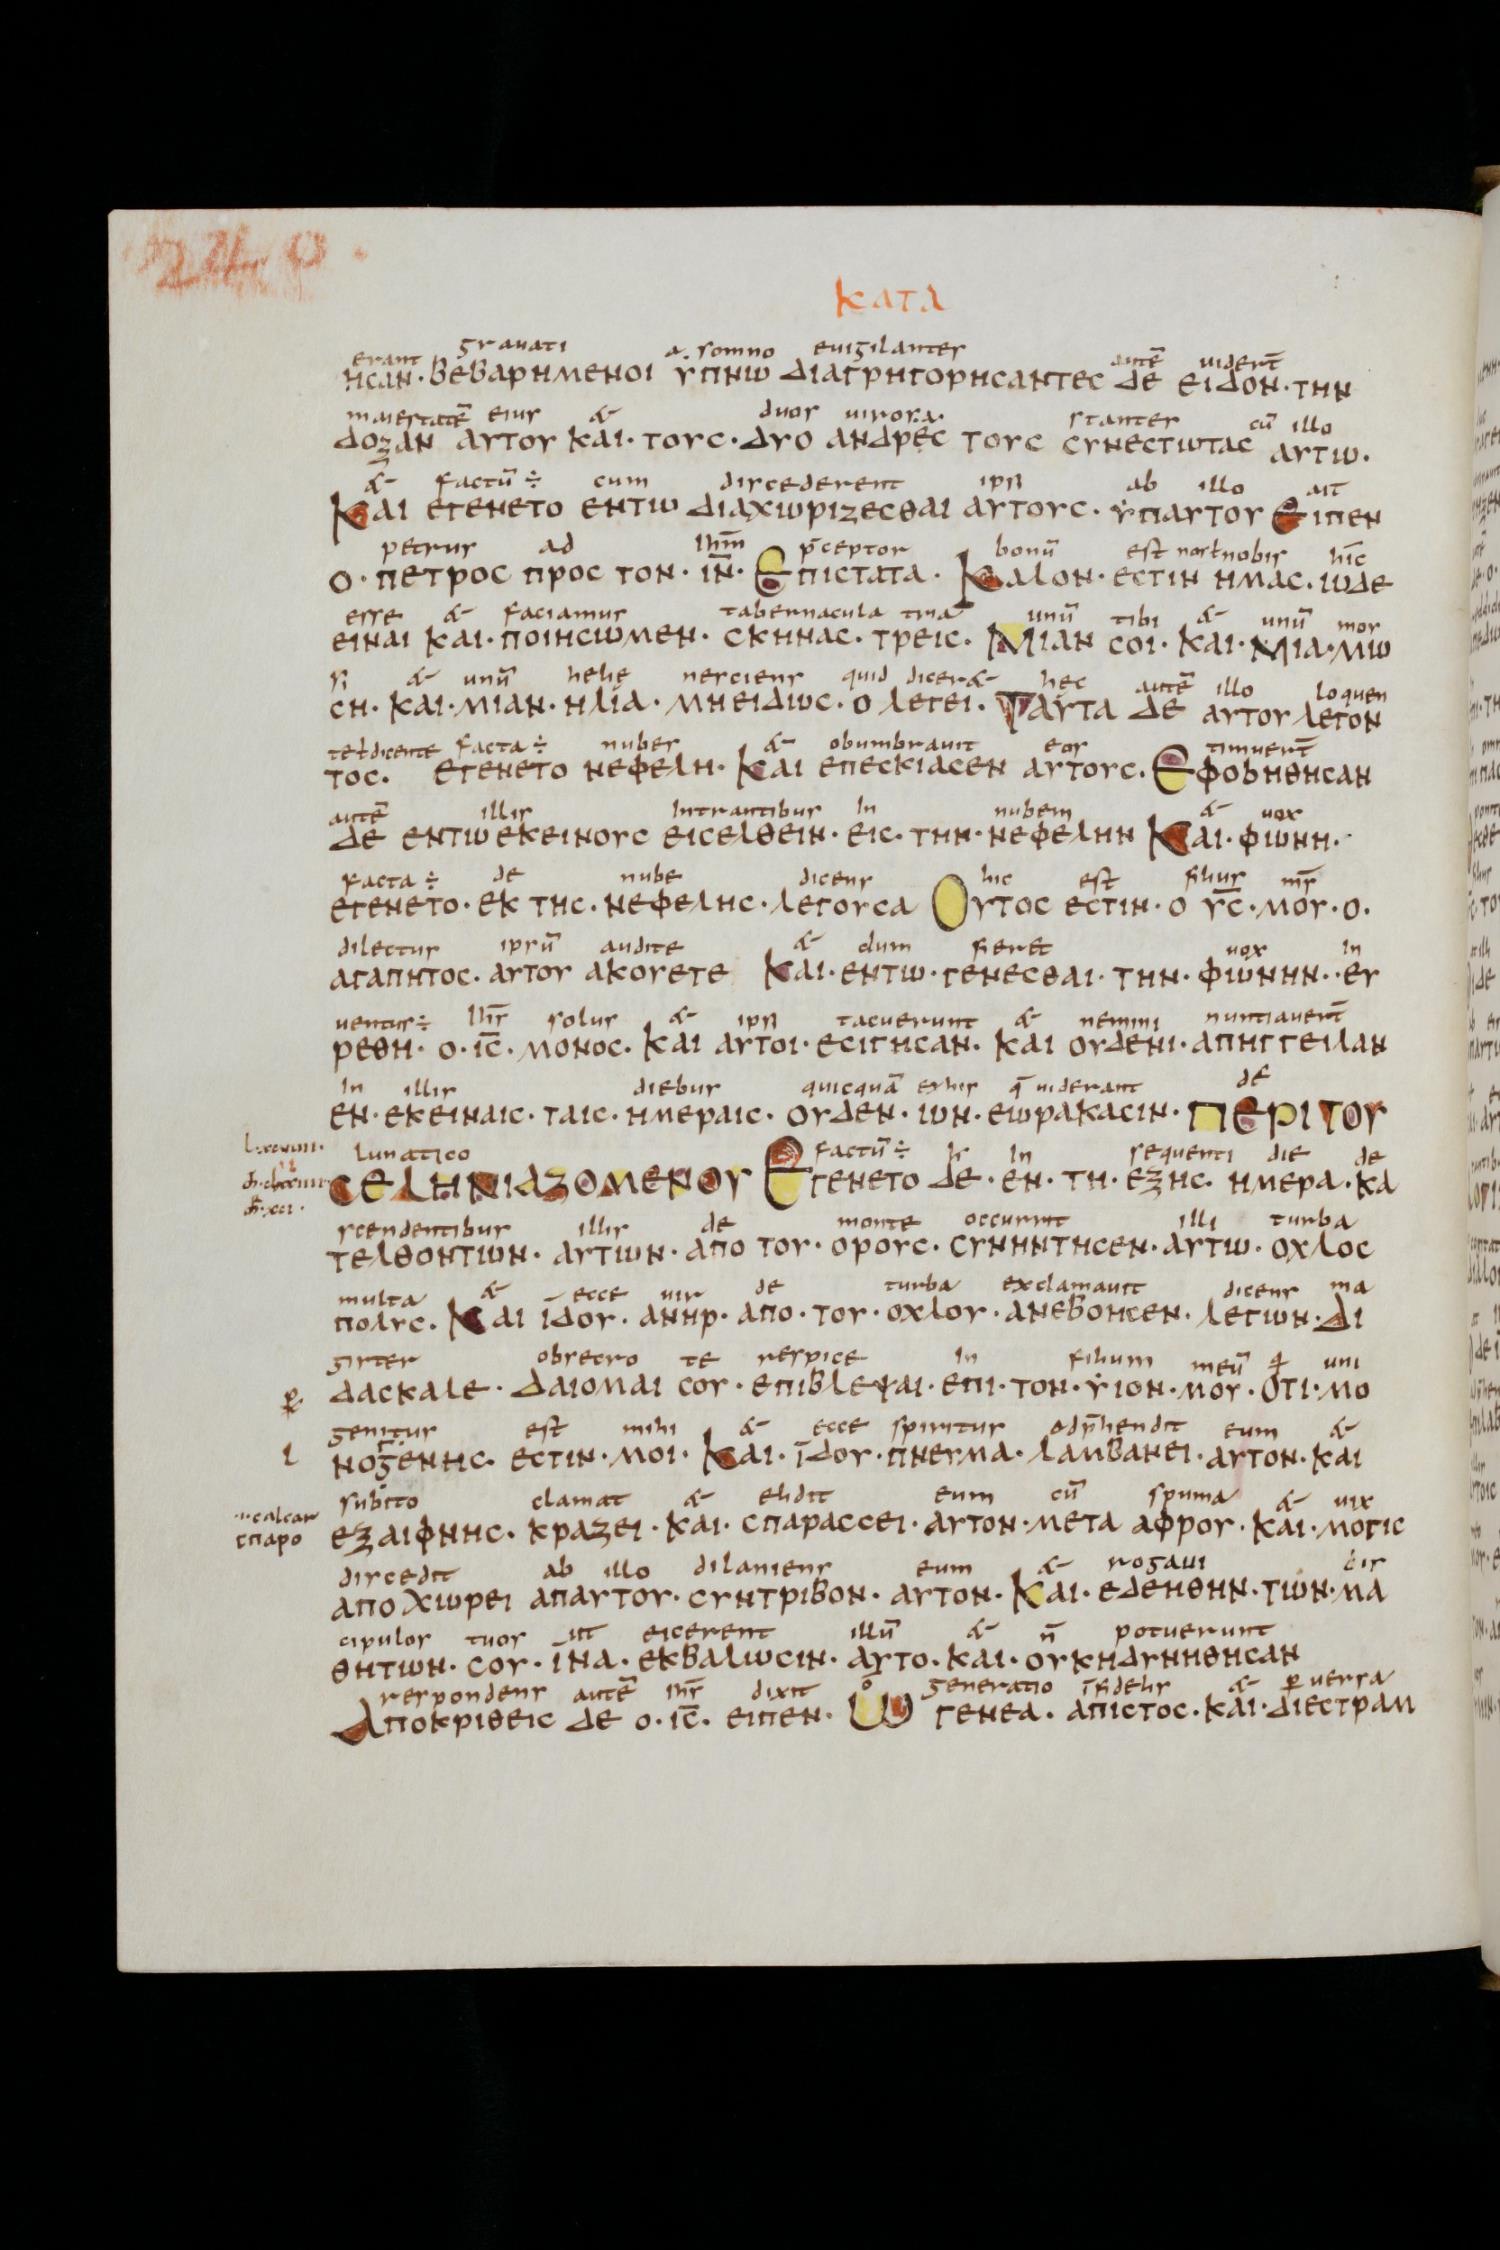 κατα
erant gravati a somno evigilantes autē viderт̄
ησαν · βεβαρημενοι ὑπνω διαγρηγορησαντες δε ειδον · την
maiestatē eius & duos viros stantes cū illo
δοξαν αυτου και · τους · δυο ανδρες τους συνεστωτας αυτω ·
& factū ÷ cum discederent ipsi ab illo ait
Και εγενετο εντω διαχωριζεσθαι αυτους · ὑπαυτου Ειπεν
petrus ad ihm̄ p̄ceptor bonū est nobis hic
ο · πετρος προς τον · ιν̄ · Επιστατα · Καλον · εστιν ημας · ωδε
esse & faciamus tabernacula tria unū tibi & unū mo
ειναι και · ποιησωμεν · σκηνας · τρεις · Μιαν σοι · και · μια · μω
si & unū helię nesciens quid dicer& hec autē illo loquen
ση · και · μιαν · ηλια · μηειδως · ο λεγει · Ταυτα δε αυτου λεγον
te ł dicente facta ÷ nubes & obumbravit eos timuerт̄
τος · εγενετο νεφελη · Και επεσκιασεν αυτους · Εφοβηθησαν
autē illis intrantibus in nubem & vox
δε εντω εκεινους εισελθειν · εις · την · νεφελην Και · φωνη ·
facta ÷ de nube dicens hic est filius ms̄
εγενετο · εκ της · νεφελης · λεγουσα Ουτος εστιν · ο υς̄ · μου · ο ·
dilectus ipsū audite & dum fieret vox in
αγαπητος · αυτου ακουετε Και · εντω · γενεσθαι · την · φωνην · ευ
ventus ÷ ihs̄ solus & ipsi tacuerunt & nemini nuntiaverт̄
ρεθη · ο · ις̄ · μονος · Και αυτοι · εσιγησαν · και ουδενι · απηγγειλαν
in illis diebus quicquā exhis q̄ viderant de
εν · εκειναις · ταις · ημεραις · ουδεν · ων · εωρακασιν · περιτου
lunatico factū ÷ in sequenti die de
σεληνιαζομενου Εγενετο δε · εν · τη · εξης · ημερα · κα
scendentibus illis de monte occurrit illi turba
τελθοντων · αυτων · απο του · ορους · συνηντησεν · αυτω · οχλος
multa & ecce vir de turba exclamavit dicens ma
πολυς · Και ιδου · ανηρ · απο · του · οχλου · ανεβοησεν · λεγων · Δι
gister obsecro te respice in filium meū uni
δασκαλε · δαιομαι σου · επιβλεψαι · επι · τον · ὑιον · μου · οτι · μο
genitus est mihi & ecce spiritus adp̄hendit eum &
νογενης · εστιν · μοι · Και · ιδου · πνευμα · λαμβανει · αυτον · και
calcar
σπαρο
subito clamat & elidit eum cū spuma & vix
εξαιφνης · κραζει · και · σπαρασσει · αυτον · μετα αφρου · και · μογις
discedit ab illo dilaniens eum & rogavi dis
αποχωρει απαυτου · συντριβον · αυτον · Και · εδεηθην · των · μα
cipulos tuos ut eicerent illū & n̄ potuerunt
θητων · σου · ινα · εκβαλωσιν · αυτο · και · ουκηδυνηθησαν
respondens autē ihs̄ dixit o generatio īfidelis & perversa
Αποκριθεις δε ο · ις̄ · ειπεν · Ω γενεα · απιστος · και · διεστραμ